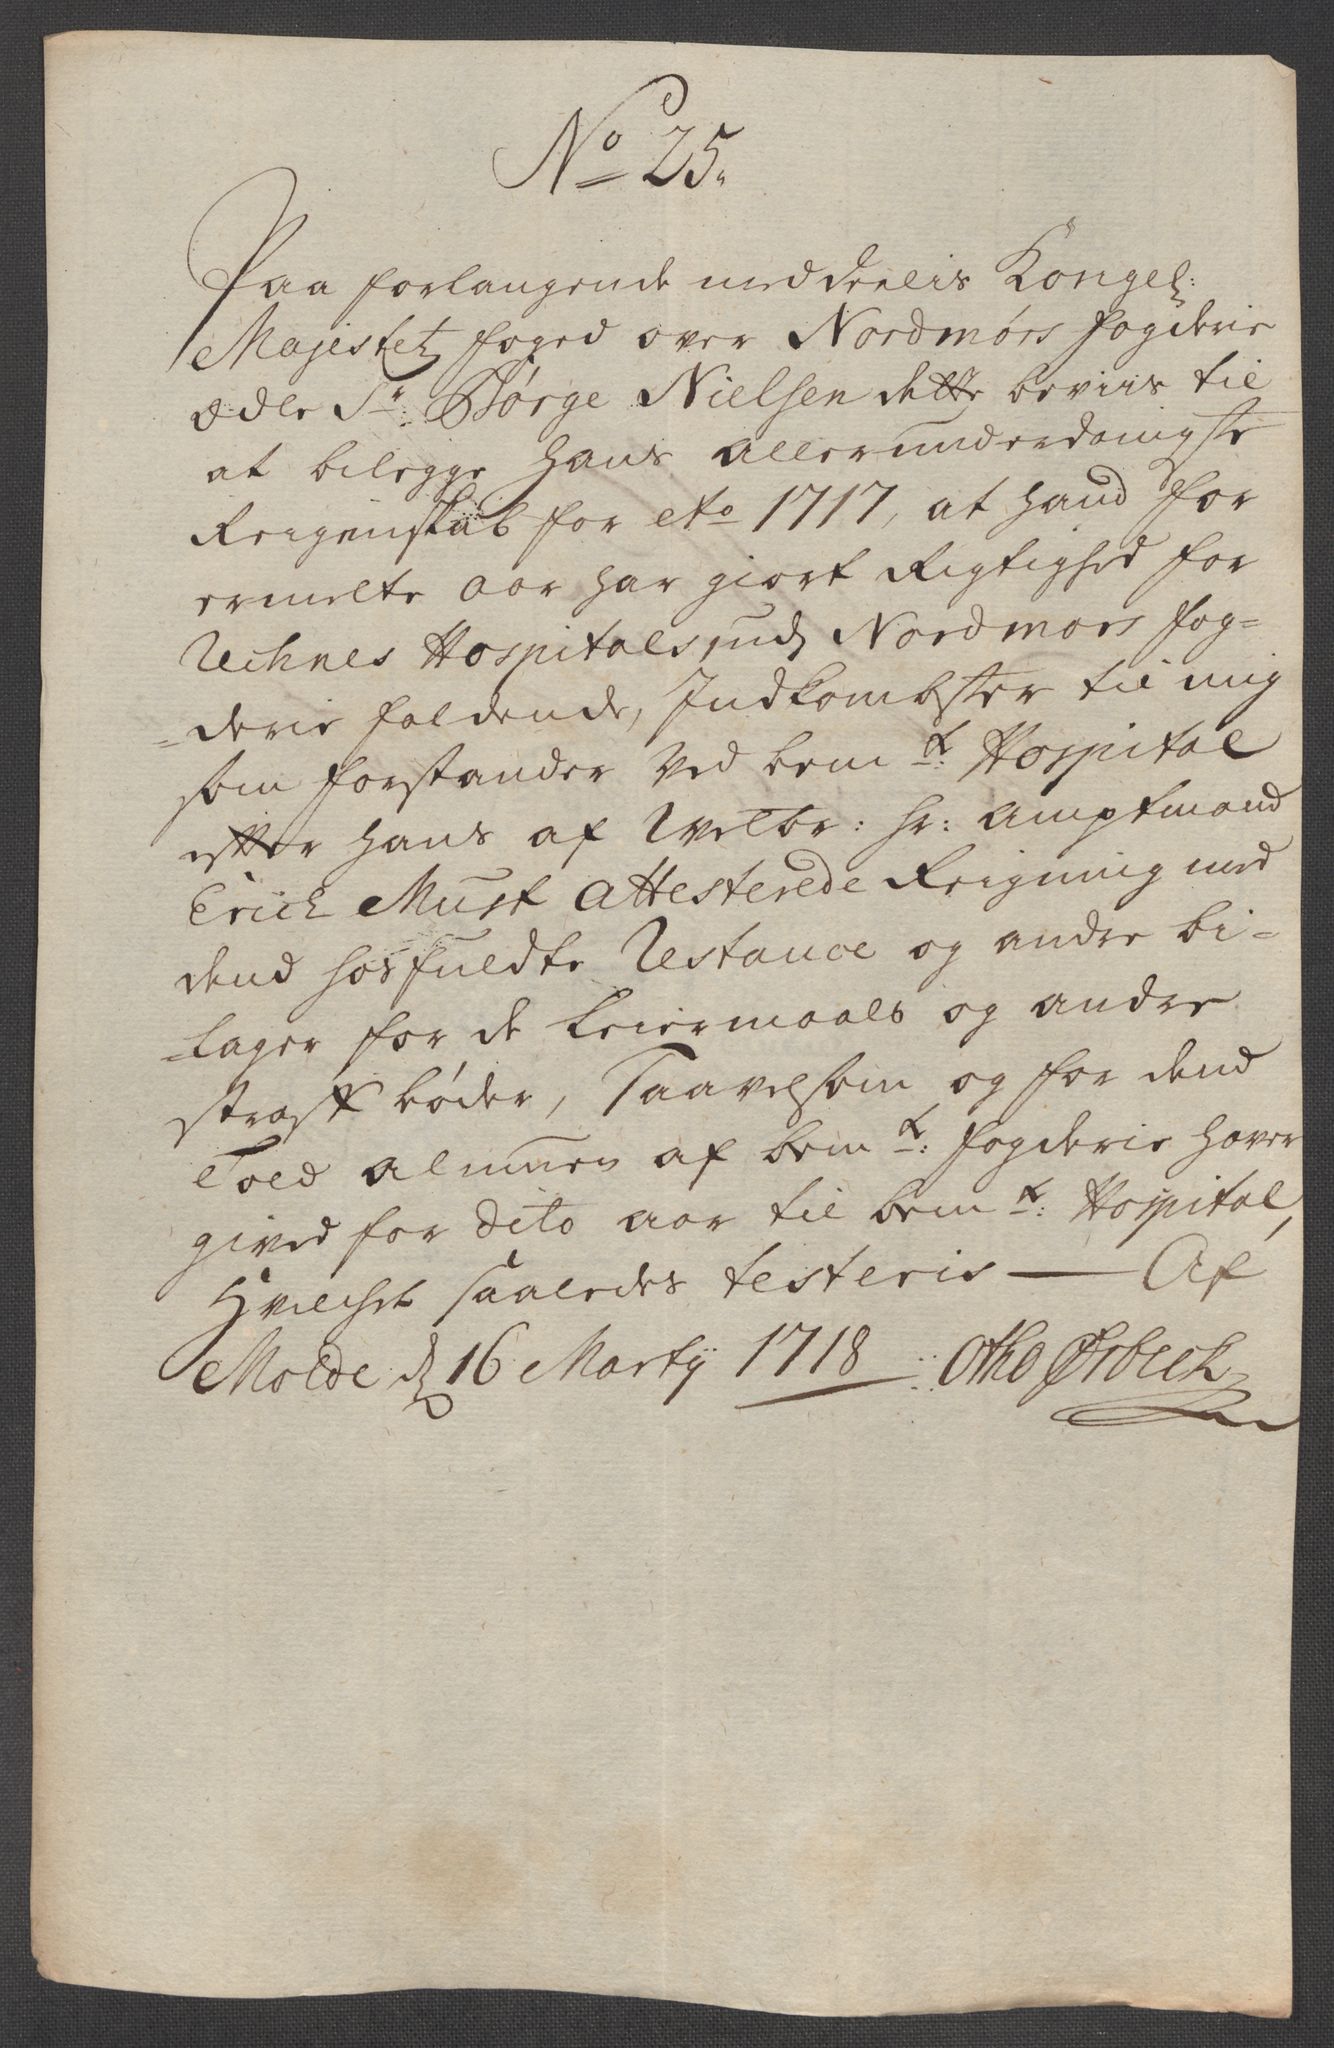 No 25.
Paa forlangende meddeelis Kongel:
Majestetz foged over Nordmørs fogderie
ædle Sr. Børge Nielsen dette beviis til
at bilegge hans allerunderdanigste
Reigenskab for Ao 1717, at hand for
ermelte aar har giort Rigtighed for
Rechnes Hospitals, udj Nordmørs fog=
=derie faldende, Indkombster til mig
som forstander ved bemte: Hospital
efter hans af Welbr: hr: amptmand
Erich Must attesterede Reigning med
dend hosfuldte Restance og andre bi=
=lager for de leiermaals og andre
straff bøder, saavelsom og for dend
Told almuen af bemte: fogderie haver
gived for dito aar til bemte: Hospital,
Hvilchet saaledes testeris — Af
Molde d 16 Martij 1718 Otho Ørbech